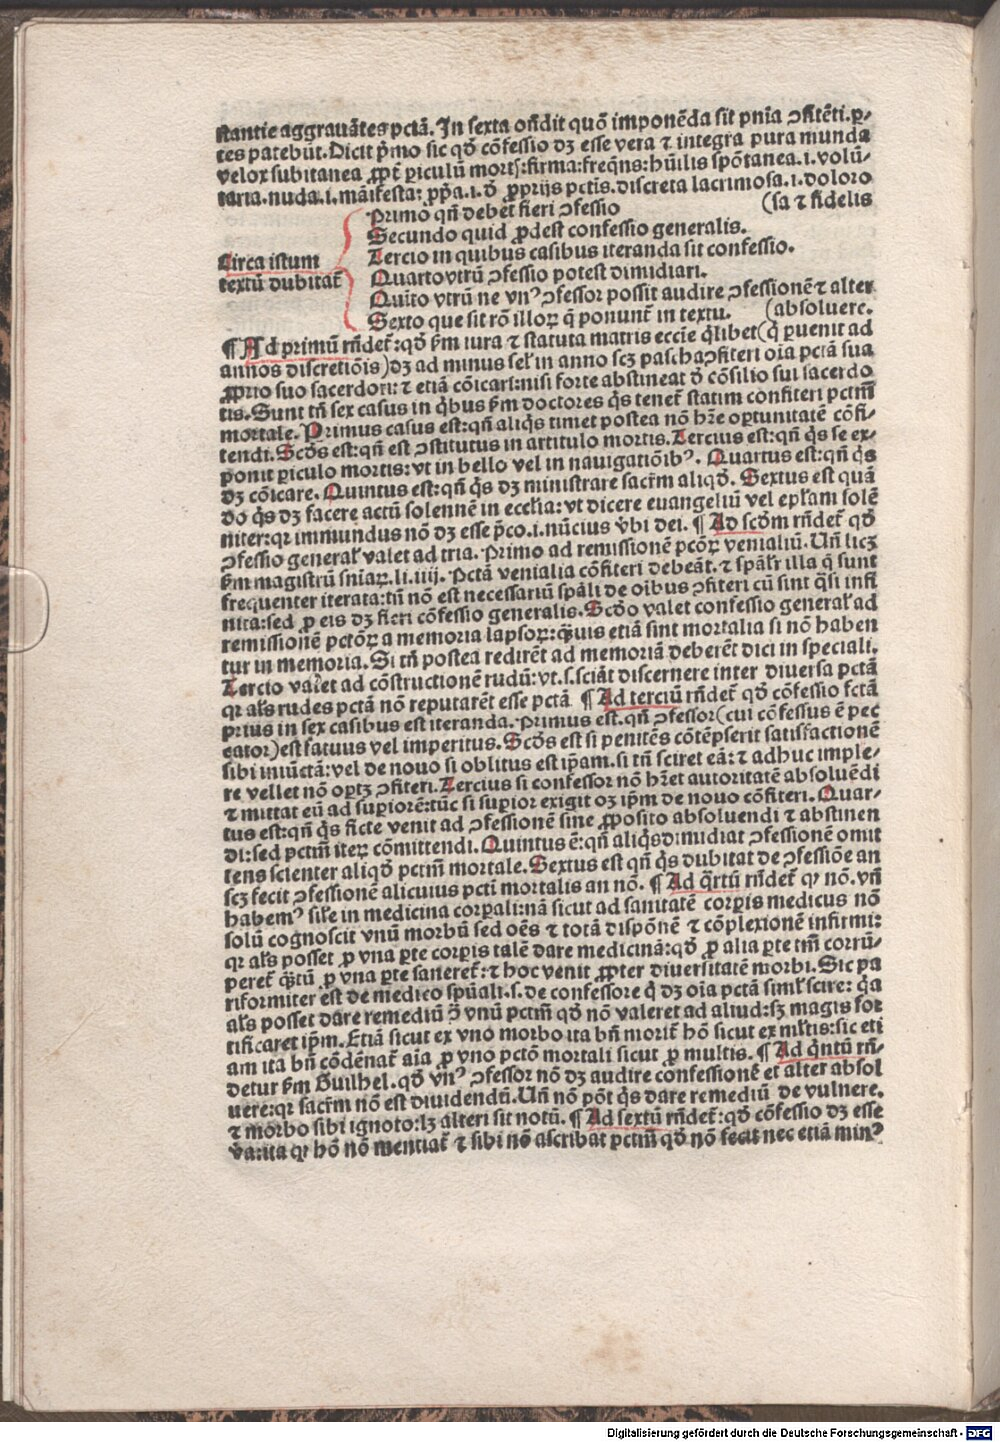 stantie aggrauãtes pctã. In sexta oñdit quõ imponẽda sit pnĩa ꝯfitẽti. ꝑ-
tes patebũt. Dicit pͥmo sic qꝺ̃ cõfessio dꝫ esse vera ⁊ integra pura munda
velox subitanea ꝓpt̃ ꝑiculũ mortꝭ: firma: freq̃ns: hũilis spõtanea .i. volũ-
taria. nuda .i. mãifesta: ꝓpͥa .i. ꝺ̃ ꝓprijs pctis. discreta lacrimosa .i. doloro
(sa ⁊ fidelis
Primo qñ debet fieri ꝯfessio
Secundo quid ꝓdest confessio generalis.
Tercio in quibus casibus iteranda sit confessio.
Circa istum
textũ dubitat̃
Quarto vtrũ ꝯfessio potest dimidiari.
Quĩto vtrũ ne vnꝰ ꝯfessor possit audire ꝯfessionẽ ⁊ alter
Sexto que sit rõ illoꝝ q̃ ponunt̃ in textu. (absoluere.
¶ Ad primũ rñdet̃: qꝺ̃ ẜm iura ⁊ statuta matris ecclĩe qͥlibet (qͥ ꝑuenit ad
annos discretiõis) dꝫ ad minus sel̃ in anno scꝫ pascha ꝯfiteri oĩa pctã sua
ꝓprio suo sacerdoti: ⁊ etiã cõicari: nisi forte abstineat ꝺ̃ cõsilio sui sacerdo
tis. Sunt tñ sex casus in qͥbus ẜm doctores qͥs tenet̃ statim confiteri pctm̃
mortale. Primus casus est: qñ aliqͥs timet postea nõ hr̃e oportunitatẽ cõfi-
tendi. Scꝺ̃s est: qñ est ꝯstitutus in articulo mortis. Tercius est: qñ qͥs se ex-
ponit ꝑiculo mortis: vt in bello vel in nauigatiõibꝰ. Quartus est: qñ qͥs
dꝫ cõicare. Quintus est: qñ qͥs dꝫ ministrare sacr̃m aliqꝺ̃. Sextus est quã
do qͥs dꝫ facere actũ solennẽ in ecclĩa: vt dicere euangeliũ vel epl̃am solẽ
niter: qꝛ immundus nõ dꝫ esse p̃co .i. nũcius v̾bi dei. ¶ Ad scꝺ̃m rñdet̃ qꝺ̃
ꝯfessio general̃ valet ad tria. Primo ad remissionẽ pcõꝝ venialiũ. Vñ licꝫ
ẜm magistrũ snĩaꝝ. li. iiij. Pctã venialia cõfiteri debeãt. ⁊ spãl̃r illa q̃ sunt
frequenter iterata: tñ nõ est necessariũ spãli de oĩbus ꝯfiteri cũ sint qͣsi infi
nita: sed ꝓ eis dꝫ fieri cõfessio generalis. Scꝺ̃o valet confessio general̃ ad
remissionẽ pctõꝝ a memoria lapsoꝝ: qͣuis etiã sint mortalia si nõ haben
tur in memoria. Si tñ postea redirẽt ad memoriã deberẽt dici in speciali.
Tercio valet ad cõstructionẽ rudũ: vt .s. sciãt discernere inter diuersa pctã
qꝛ al̃s rudes pctã nõ reputarẽt esse pctã. ¶ Ad terciũ rñdet̃ qꝺ̃ cõfessio fctã
prius in sex casibus est iteranda. Primus est. qñ ꝯfessor (cui cõfessus ẽ pec
cator) est fatuus vel imperitus. Scꝺ̃s est si penitẽs cõtẽpserit satisfactionẽ
sibi iniũctã: vel de nouo si oblitus est ip̃am. si tñ sciret eã: ⁊ adhuc imple-
re vellet nõ oportꝫ ꝯfiteri. Tercius si confessor nõ hr̃et autoritatẽ absoluẽdi
⁊ mittat eũ ad suꝑiorẽ: tũc si suꝑior exigit dꝫ ip̃m de nouo cõfiteri. Quar-
tus est: qñ qͥs ficte venit ad ꝯfessionẽ sine ꝓposito absoluendi ⁊ abstinen
di: sed pctm̃ iteꝝ cõmittendi. Quintus ẽ: qñ aliqͥs dimidiat ꝯfessionẽ omit
tens scienter aliqꝺ̃ pctm̃ mortale. Sextus est qñ qͥs dubitat de ꝯfessiõe an
scꝫ fecit ꝯfessionẽ alicuius pcti mortalis an nõ. ¶ Ad qͣrtũ rñdet̃ qꝙ nõ. vñ
habemꝰ sil̃e in medicina corꝑali: nã sicut ad sanitatẽ corꝑis medicus nõ
solũ cognoscit vnũ morbũ sed oẽs ⁊ totã dispõnẽ ⁊ cõplexionẽ infirmi:
qꝛ al̃s posset ꝓ vna ꝑte corꝑis talẽ dare medicinã: qꝺ̃ ꝓ alia ꝑte tm̃ corrũ-
peret̃ qͣtũ ꝓ vna ꝑte saneret̃: ⁊ hoc venit ꝓpter diuersitatẽ morbi. Sic pa
riformiter est de medico spũali .s. de confessore qͥ dꝫ oĩa pctã simĩl̃ scire: qͥa
al̃s posset dare remediũ ꝯ̃ vnũ pctm̃ qꝺ̃ nõ valeret ad aliud: sꝫ magis for
tificaret ip̃m. Etiã sicut ex vno morbo ita bñ morit̃ hõ sicut ex ml̃tis: sic eti
am ita bñ cõdẽnat̃ aĩa ꝓ vno pctõ mortali sicut ꝓ multis. ¶ Ad qͥntũ rñ-
detur ẜm Guilhel. qꝺ̃ vnꝰ ꝯfessor nõ dꝫ audire confessionẽ et alter absol
uere: qꝛ sacr̃m nõ est diuidendũ. Vñ nõ põt qͥs dare remediũ de vulnere.
⁊ morbo sibi ignoto: lꝫ alteri sit notũ. ¶ Ad sextũ rñdet̃: qꝺ̃ cõfessio dꝫ esse
v̾a: ita qꝙ hõ nõ mentiat̃ ⁊ sibi nõ ascribat pctm̃ qꝺ̃ nõ fecit nec etiã minꝰ
Digitalisierung gefördert durch die Deutsche Forschungsgemeinschaft - DFG